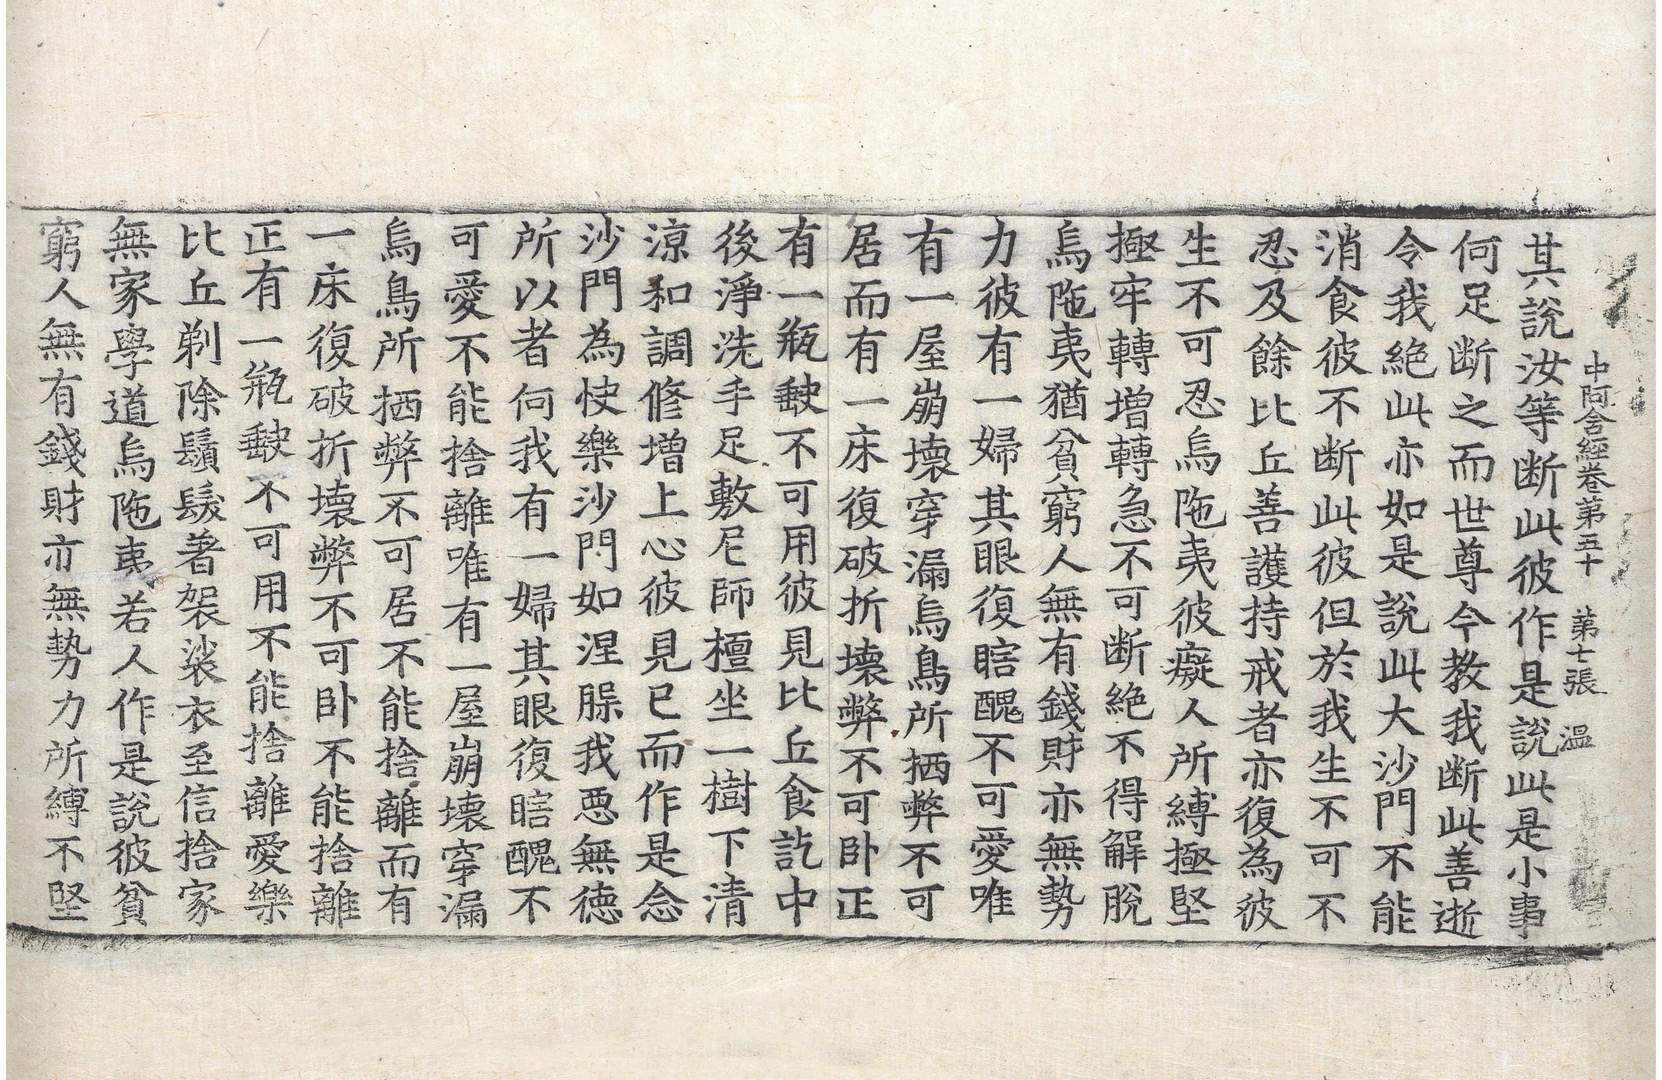 中阿含經卷第五十 第七張 温
其說汝等断此彼作是說此是小事
何足断之而世尊今教我断此善逝
令我絶此亦如是說此大沙門不能
消食彼不断此彼但於我生不可不
忍及餘比丘善護持戒者亦復為彼
生不可忍烏陁夷彼癡人所縛極堅
極牢轉增轉急不可断絶不得解脫
烏陁夷猶貧窮人無有錢財亦無勢
力彼有一婦其眼復瞎醜不可愛唯
有一屋崩壞穿漏烏鳥所栖弊不可
居而有一床復破折壞弊不可卧正
有一瓶䴙不可用彼見比丘食訖中
後淨洗手足敷尼師檀坐一樹下清
涼和調修增上心彼見已而作是念
沙門為快樂沙門如涅槃我惡無德
所以者何我有一婦其眼復瞎醜不
可愛不能捨離唯有一屋崩壞穿漏
烏鳥所栖弊不可居不能捨離而有
一床復破折壞弊不可卧不能捨離
正有一瓶䴙不可用不能捨離愛樂
比丘剃除鬚髮著袈裟衣至信捨家
無家學道烏陁夷若人作是說彼貧
窮人無有錢財亦無勢力所縛不堅